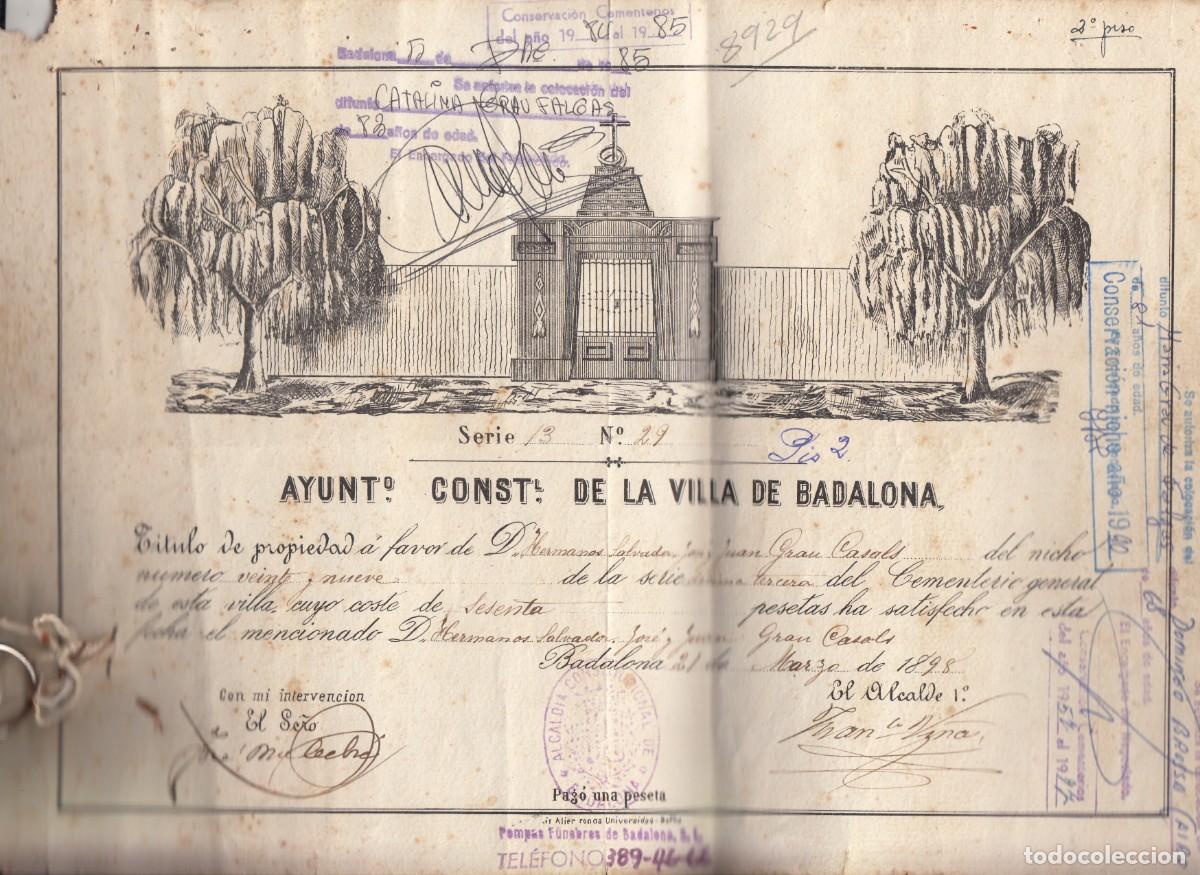 Conservación Cementerios
del año 1984 al 1985
8929
2º piso
Badalona 12 de de 1985
Se autoriza la colocación del
difunto CATALINA GRAU FALGAS
de 82 años de edad.
El Encargado
Serie 13 Nº 29
Pis 2.
AYUNTº CONSTL DE LA VILLA DE BADALONA,
Título de propiedad á favor de D. Hermanos Salvador, José y Juan Grau Casals del nicho
numero veinte y nueve de la serie décima tercera del Cementerio general
de esta villa, cuyo coste de Sesenta pesetas ha satisfecho en esta
fecha el mencionado D. Hermanos Salvador, José y Juan Grau Casals
Badalona 21 de Marzo de 1898
Con mi intervencion
El Seño
El Alcalde 1º
ALCALDIA CONSTITUCIONAL DE BADALONA
Pagó una peseta
Pompas Fúnebres de Badalona, S. L.
TELÉFONO 389-46-
Conservación nicho año 1992
Se autoriza la colocación del
difunto
de 81 años de edad.
DOMINGO
de 68 años de edad.
El Encargado
Cementerios
del año 1957 al 19
todocoleccion